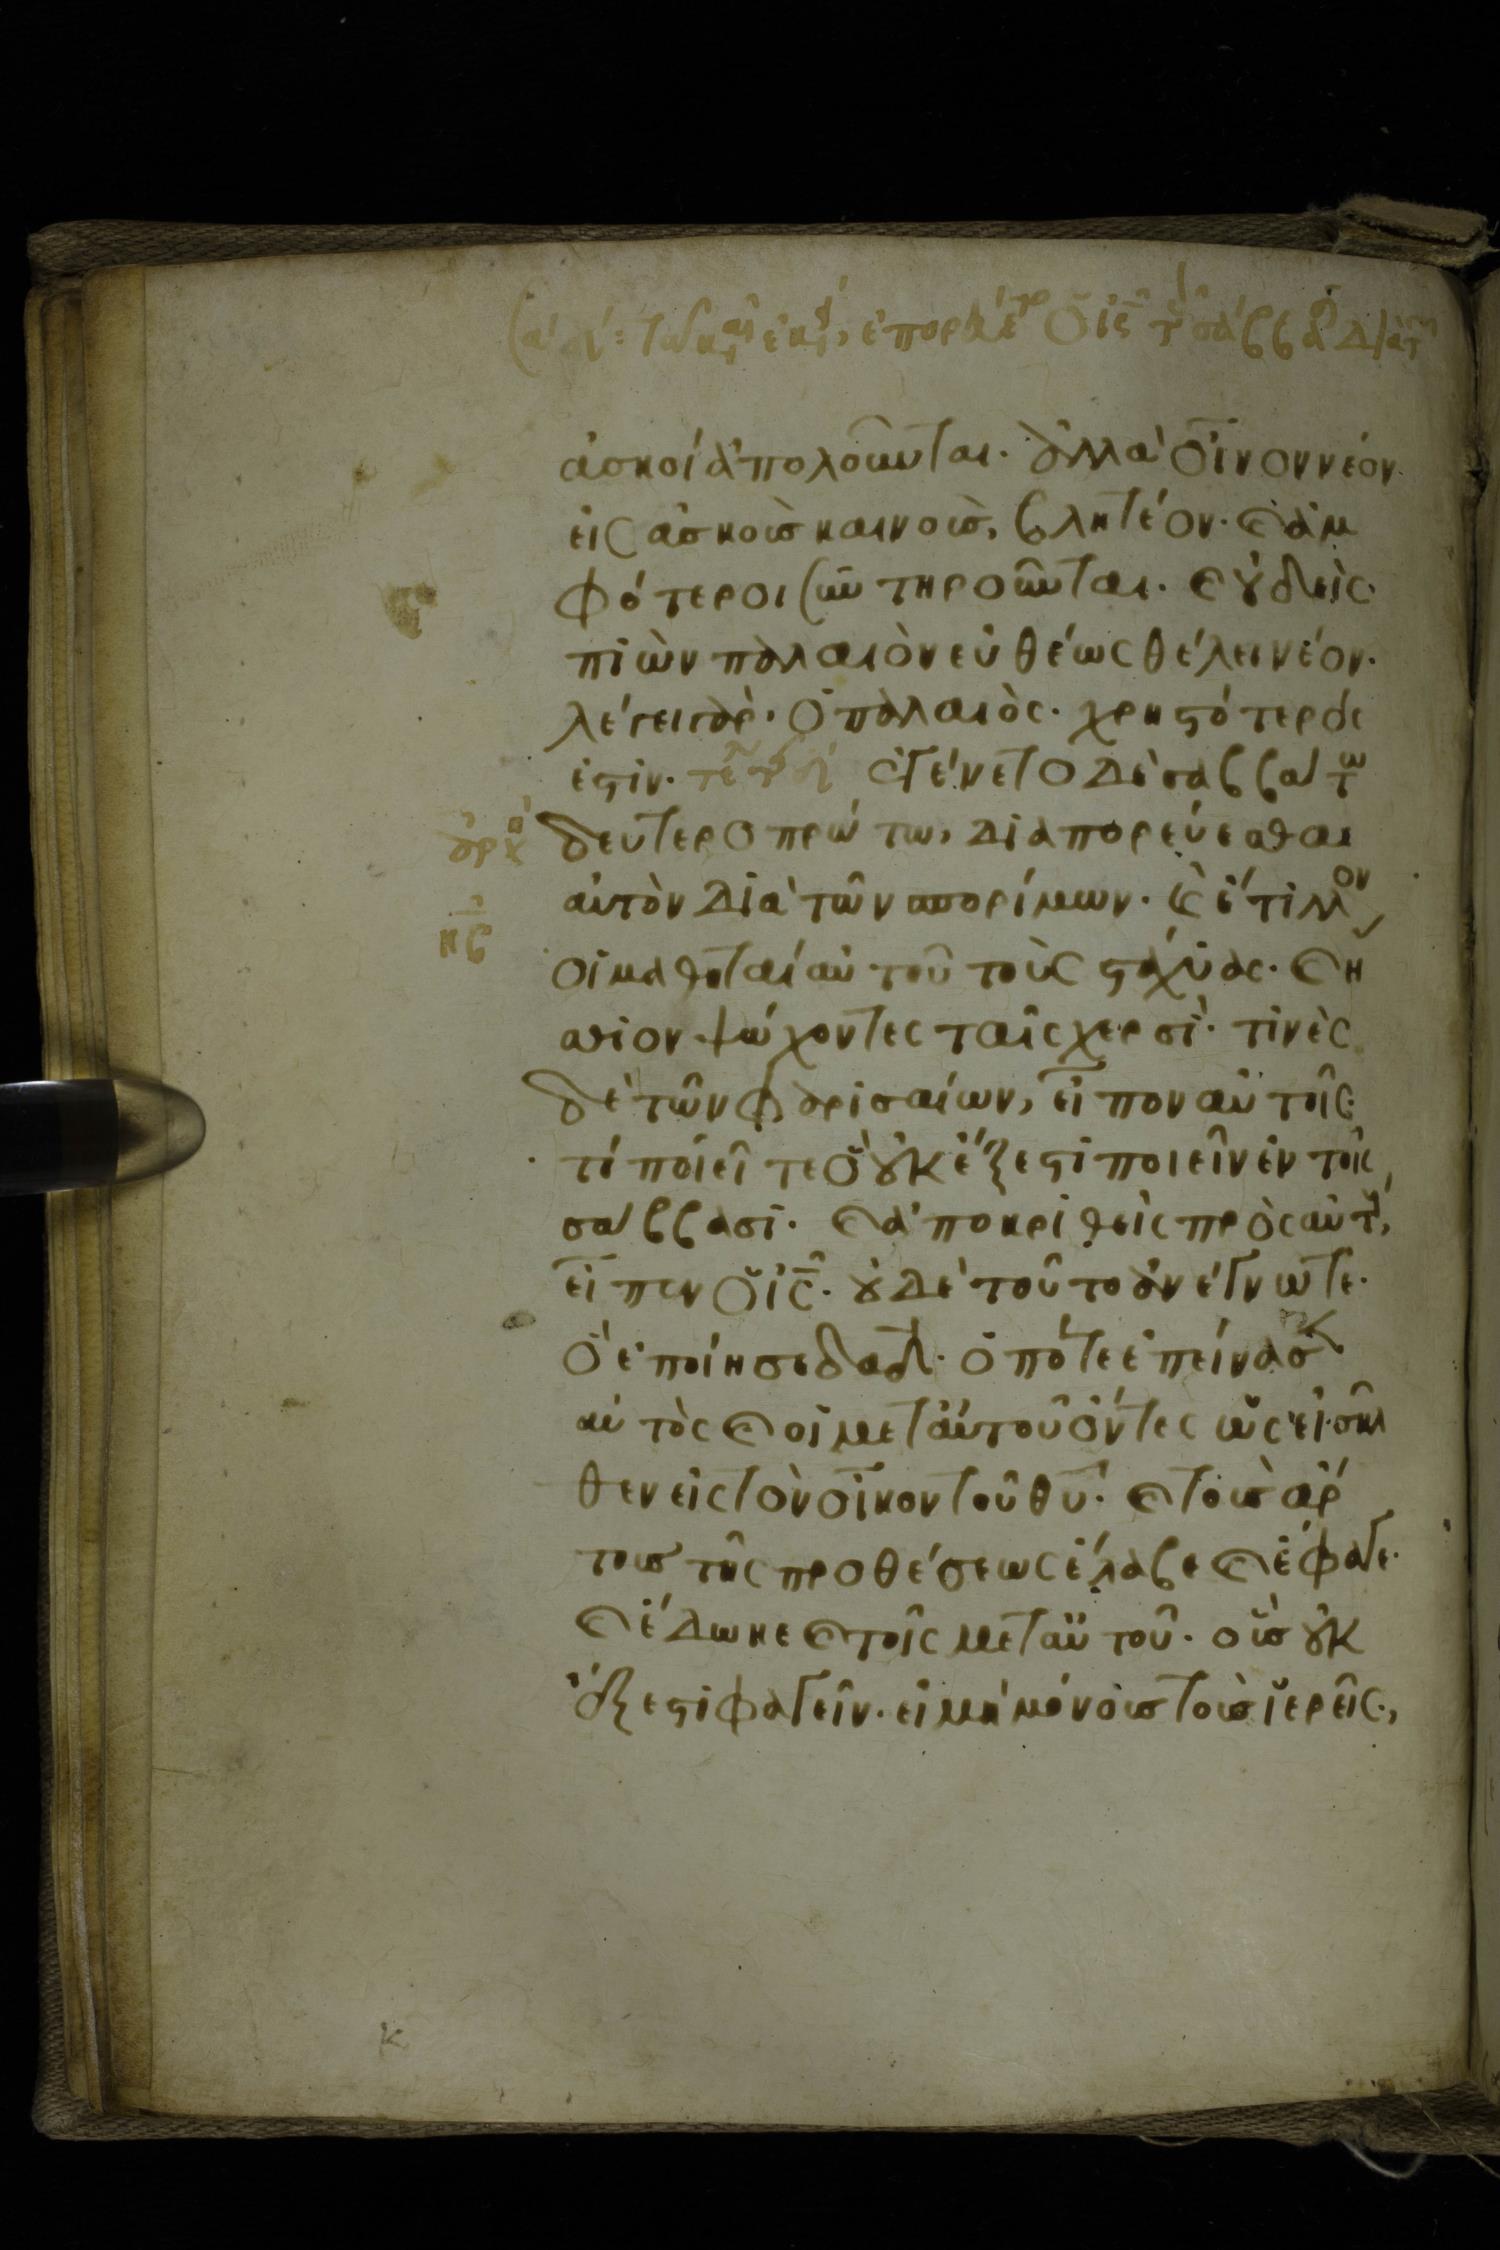 ἀσκοὶ ἀπολοῦνται· ἀλλὰ οἶνον νέον·
εἰς ἀσκοὺς καινοὺς, βλητέον· καὶ ἀμ
φότεροι συντηροῦνται· καὶ οὐδεὶς·
πιὼν παλαιὸν εὐθέως θέλει νέον·
λέγει γὰρ· ὁ παλαιὸς· χρηστότερός
ἐστιν· τε ἐγένετο δὲ σαββάτω
ἀρχ δευτεροπρώτω, διαπορεύεσθαι
αὐτὸν διὰ τῶν σπορίμων· καὶ ἔτιλλον
κϛ
οἱ μαθηταὶ αὐτοῦ τοὺς στάχυας· καὶ ἤ
σθιον ψώχοντες ταῖς χερσὶ· τινὲς
δὲ τῶν φαρισαίων, εἶπον αὐτοῖς·
τί ποιεῖτε ὃ οὐκ ἔξεστι ποιεῖν ἐν τοῖς
σάββασι· καὶ ἀποκριθεὶς πρὸς αὐτοὺς,
εἶπεν ὁ ις· οὐδὲ τοῦτο ἀνέγνωτε·
ὃ ἐποίησε δαδ· ὁπότε ἐπείνασεν
αὐτὸς καὶ οἱ μετ αὐτοῦ ὄντες ὡς εἰσῆλ
θεν εἰς τὸν οἶκον τοῦ θυ· καὶ τοὺς ἄρ
τους τῆς προθέσεως ἔλαβε καὶ ἔφαγε·
καὶ ἔδωκε καὶ τοῖς μετ αὐτοῦ· οὓς οὐκ
ἔξεστι φαγεῖν· εἰ μὴ μόνους τοὺς ἱερεῖς·,